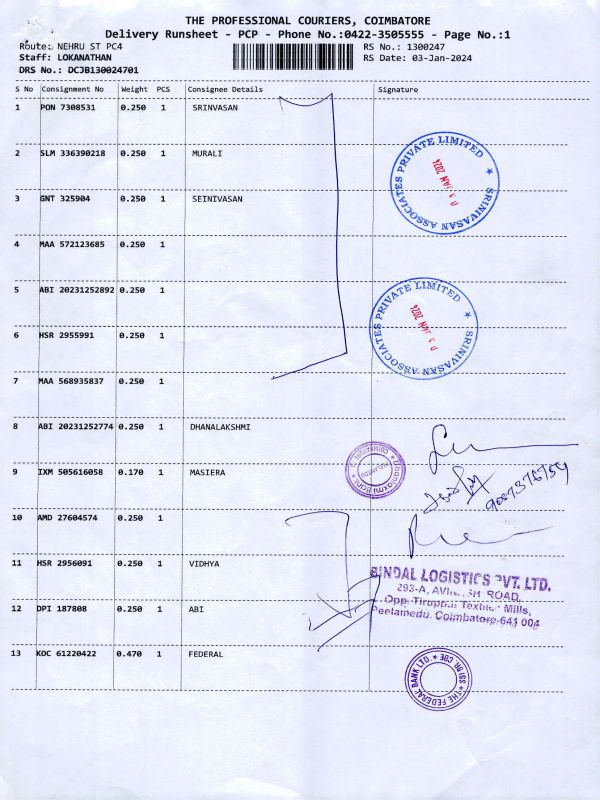 THE PROFESSIONAL COURIERS, COIMBATORE
Delivery Runsheet - PCP - Phone No.:0422-3505555 - Page No.:1
Route: NEHRU ST PC4 RS No.: 1300247
Staff: LOKANATHAN RS Date: 03-Jan-2024
DRS No.: DCJB130024701
S No Consignment No Weight PCS Consignee Details Signature
1 PON 7308531 0.250 1 SRINVASAN
2 SLM 336390218 0.250 1 MURALI
SRINIVASAN ASSOCIATES PRIVATE LIMITED
03 JAN 2024
3 GNT 325904 0.250 1 SEINIVASAN
4 MAA 572123685 0.250 1
5 ABI 20231252892 0.250 1
SRINIVASAN ASSOCIATES PRIVATE LIMITED
03 JAN 2024
6 HSR 2955991 0.250 1
7 MAA 568935837 0.250 1
8 ABI 20231252774 0.250 1 DHANALAKSHMI
9 IXM 505616058 0.170 1 MASIERA
10 AMD 27604574 0.250 1
11 HSR 2956091 0.250 1 VIDHYA
BINDAL LOGISTICS PVT. LTD.
293-A, ROAD,
Opp. Tiruppur Textile Mills,
Peelamedu, Coimbatore-641 004
12 DPI 187808 0.250 1 ABI
13 KOC 61220422 0.470 1 FEDERAL
THE FEDERAL BANK LTD.